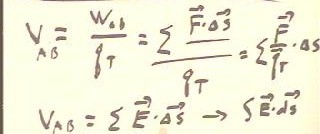 V_AB = W_ab / q_T = Σ F⃗·Δs⃗ / q_T = Σ F⃗/q_T · Δs
V_AB = Σ E⃗·Δs⃗ → ∫ E⃗·ds⃗